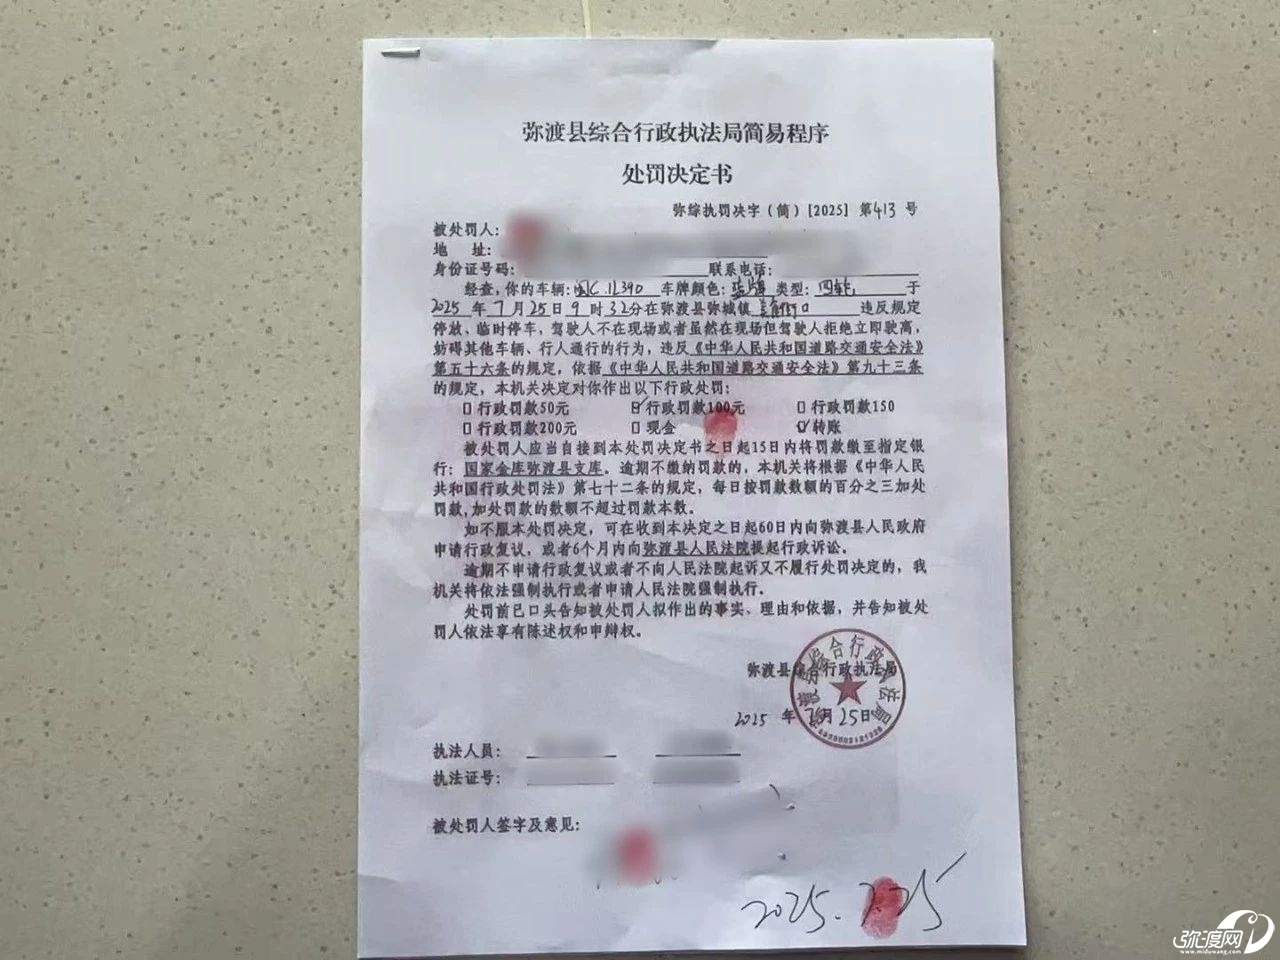 弥渡县综合行政执法局简易程序
处罚决定书
弥综执罚决字（简）[2025] 第413 号
被处罚人：
地 址：
身份证号码： 联系电话：
经查，你的车辆： 车牌颜色：蓝牌 类型：四轮 于
2025 年 7 月 25 日 9 时 32分在弥渡县弥城镇 违反规定
停放、临时停车，驾驶人不在现场或者虽然在现场但驾驶人拒绝立即驶离，
妨碍其他车辆、行人通行的行为，违反《中华人民共和国道路交通安全法》
第五十六条的规定，依据《中华人民共和国道路交通安全法》第九十三条
的规定，本机关决定对你作出以下行政处罚：
□ 行政罚款50元 ☑ 行政罚款100元 □ 行政罚款150
□ 行政罚款200元 □ 现金 ☑ 转账
被处罚人应当自接到本处罚决定书之日起15日内将罚款缴至指定银
行：国家金库弥渡县支库。逾期不缴纳罚款的，本机关将根据《中华人民
共和国行政处罚法》第七十二条的规定，每日按罚款数额的百分之三加处
罚款，加处罚款的数额不超过罚款本数。
如不服本处罚决定，可在收到本决定之日起60日内向弥渡县人民政府
申请行政复议，或者6个月内向弥渡县人民法院提起行政诉讼。
逾期不申请行政复议或者不向人民法院起诉又不履行处罚决定的，我
机关将依法强制执行或者申请人民法院强制执行。
处罚前已口头告知被处罚人拟作出的事实、理由和依据，并告知被处
罚人依法享有陈述权和申辩权。
弥渡县综合行政执法局
2025 年 7月 25日
执法人员：
执法证号：
被处罚人签字及意见：
2025.7.25
弥渡网
www.miduwang.com